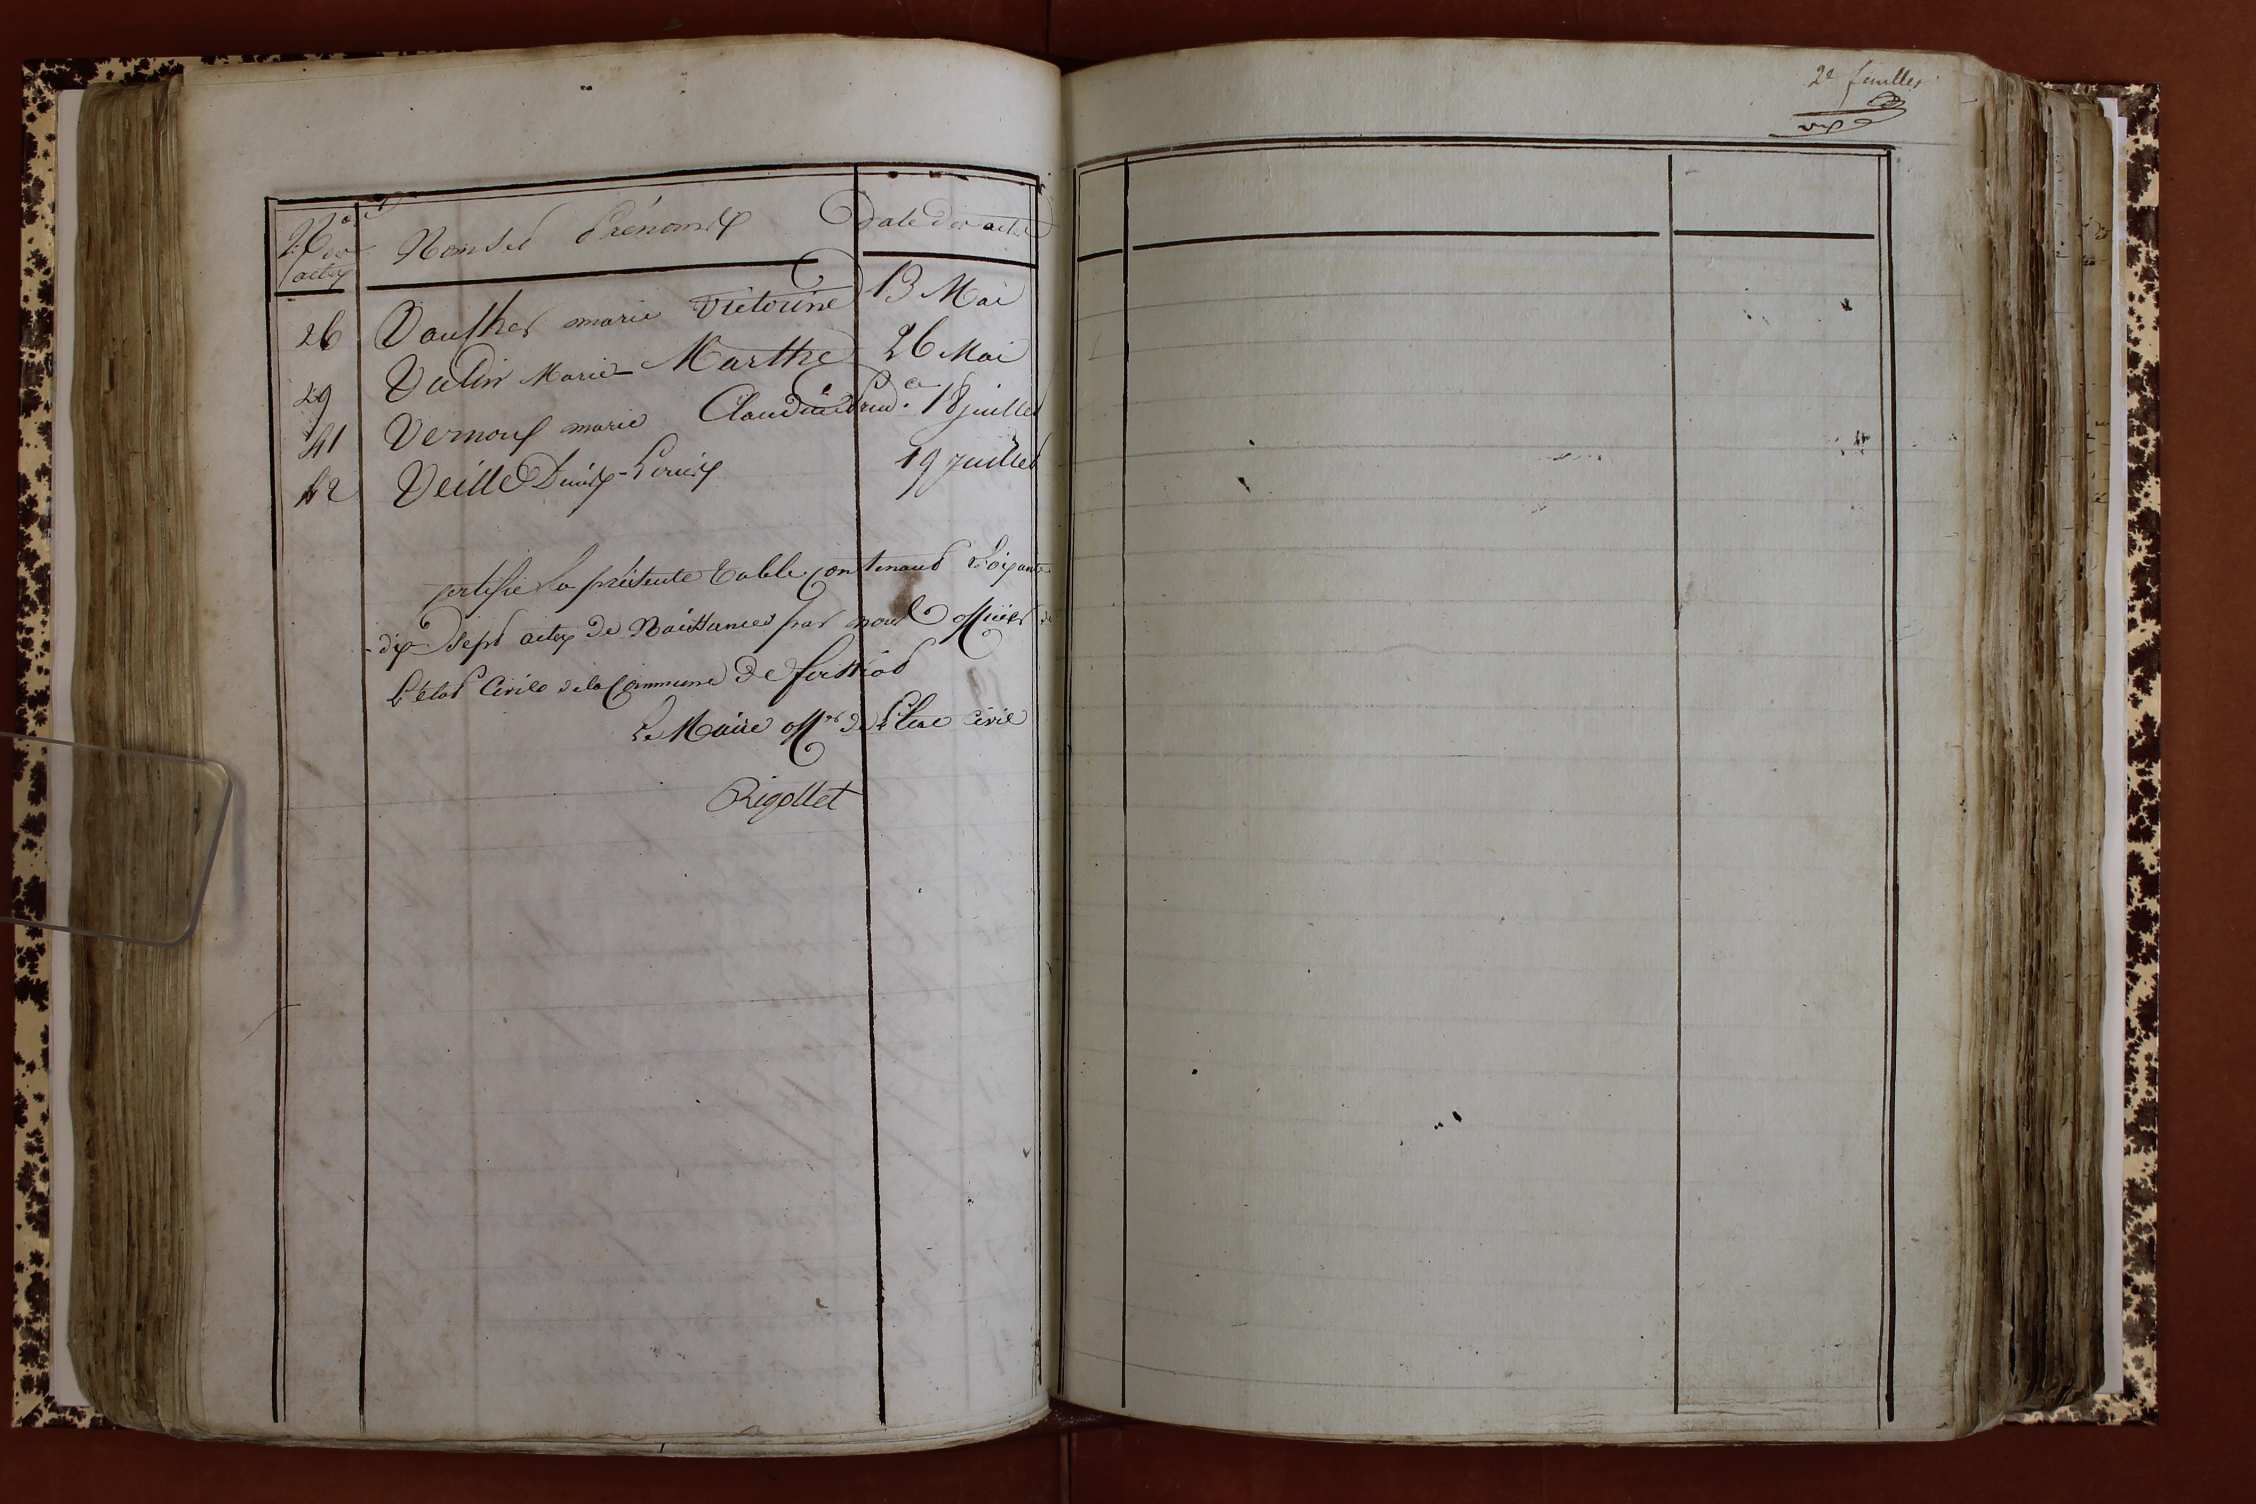 Nos des actes Noms et Prénoms Date des actes
26 Vauther marie Victorine 13 Mai
29 Vulin Marie Marthe 26 Mai
41 Vernoux marie Claudine 18 juillet
42 Veille Denis-Louis 19 juillet
Certifié la présente Table contenant Soixante
dix Sept actes de Naissances par nous officier de
L'état Civile de la Commune de foissiat
Le Maire offer de l'état Civil
Rigollet
2e feuillet